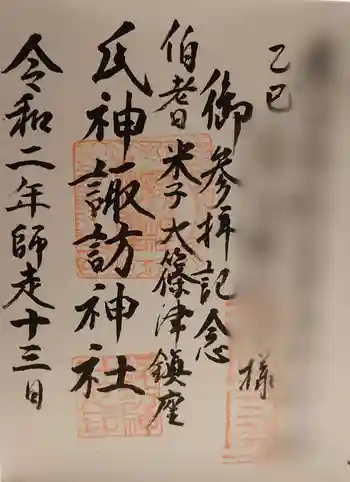 乙巳
様
御参拝記念
伯耆国米子大篠津鎮座
氏神諏訪神社
令和二年師走十三日